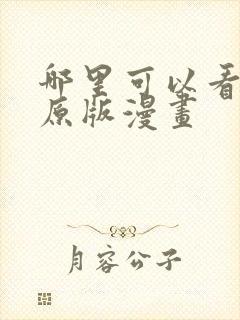 哪里可以看
原版漫畫
月容公子